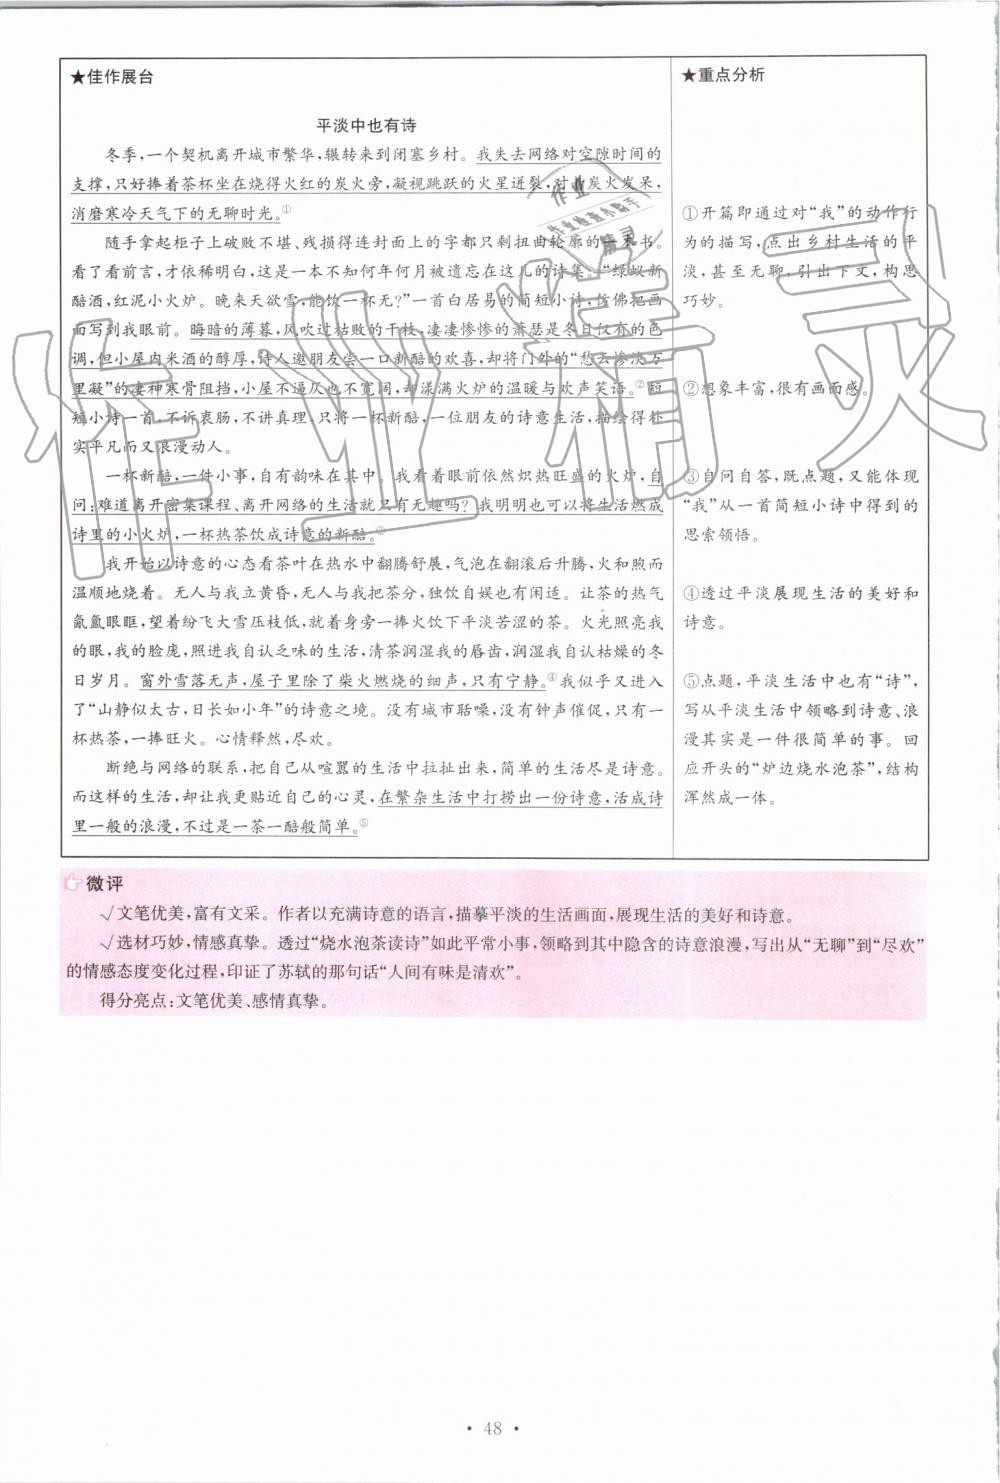 ★佳作展台
平淡中也有诗
冬季,一个契机离开城市繁华,辗转来到闭塞乡村。我失去网络对空隙时间的
支撑,只好捧着茶杯坐在烧得火红的炭火旁,凝视跳跃的火星迸裂,对着炭火发呆,
消磨寒冷天气下的无聊时光。①
随手拿起柜子上破败不堪、残损得连封面上的字都只剩扭曲轮廓的一本书。
看了看前言,才依稀明白,这是一本不知何年何月被遗忘在这儿的诗集。“绿蚁新
醅酒,红泥小火炉。晚来天欲雪,能饮一杯无?”一首白居易的简短小诗,仿佛把画
面写到我眼前。晦暗的薄暮,风吹过枯败的干枝,凄凄惨惨的萧瑟是冬日仅有的色
调,但小屋内米酒的醇厚,诗人邀朋友尝一口新醅的欢喜,却将门外的“愁云惨淡万
里凝”的凄神寒骨阻挡,小屋不逼仄也不宽阔,却漾满火炉的温暖与欢声笑语。②短
短小诗一首,不诉衷肠,不讲真理,只将一杯新醅,一位朋友的诗意生活,描绘得朴
实平凡而又浪漫动人。
一杯新醅,一件小事,自有韵味在其中。我看着眼前依然炽热旺盛的火炉,自
问:难道离开密集课程、离开网络的生活就只有无趣吗?我明明也可以将生活燃成
诗里的小火炉,一杯热茶饮成诗意的新醅。③
我开始以诗意的心态看茶叶在热水中翻腾舒展,气泡在翻滚后升腾,火和煦而
温顺地烧着。无人与我立黄昏,无人与我把茶分,独饮自娱也有闲适。让茶的热气
氤氲眼眶,望着纷飞大雪压枝低,就着身旁一捧火饮下平淡苦涩的茶。火光照亮我
的眼,我的脸庞,照进我自认乏味的生活,清茶润湿我的唇齿,润湿我自认枯燥的冬
日岁月。窗外雪落无声,屋子里除了柴火燃烧的细声,只有宁静。④我似乎又进入
了“山静似太古,日长如小年”的诗意之境。没有城市聒噪,没有钟声催促,只有一
杯热茶,一捧旺火。心情释然,尽欢。
断绝与网络的联系,把自己从喧嚣的生活中拉扯出来,简单的生活尽是诗意。
而这样的生活,却让我更贴近自己的心灵,在繁杂生活中打捞出一份诗意,活成诗
里一般的浪漫,不过是一茶一醅般简单。⑤
★重点分析
①开篇即通过对“我”的动作行
为的描写,点出乡村生活的平
淡,甚至无聊,引出下文,构思
巧妙。
②想象丰富,很有画面感。
③自问自答,既点题,又能体现
“我”从一首简短小诗中得到的
思索领悟。
④透过平淡展现生活的美好和
诗意。
⑤点题,平淡生活中也有“诗”,
写从平淡生活中领略到诗意、浪
漫其实是一件很简单的事。回
应开头的“炉边烧水泡茶”,结构
浑然成一体。
微评
√文笔优美,富有文采。作者以充满诗意的语言,描摹平淡的生活画面,展现生活的美好和诗意。
√选材巧妙,情感真挚。透过“烧水泡茶读诗”如此平常小事,领略到其中隐含的诗意浪漫,写出从“无聊”到“尽欢”
的情感态度变化过程,印证了苏轼的那句话“人间有味是清欢”。
得分亮点:文笔优美、感情真挚。
• 48 •
作业精灵
作业
作业检查小助手
精灵